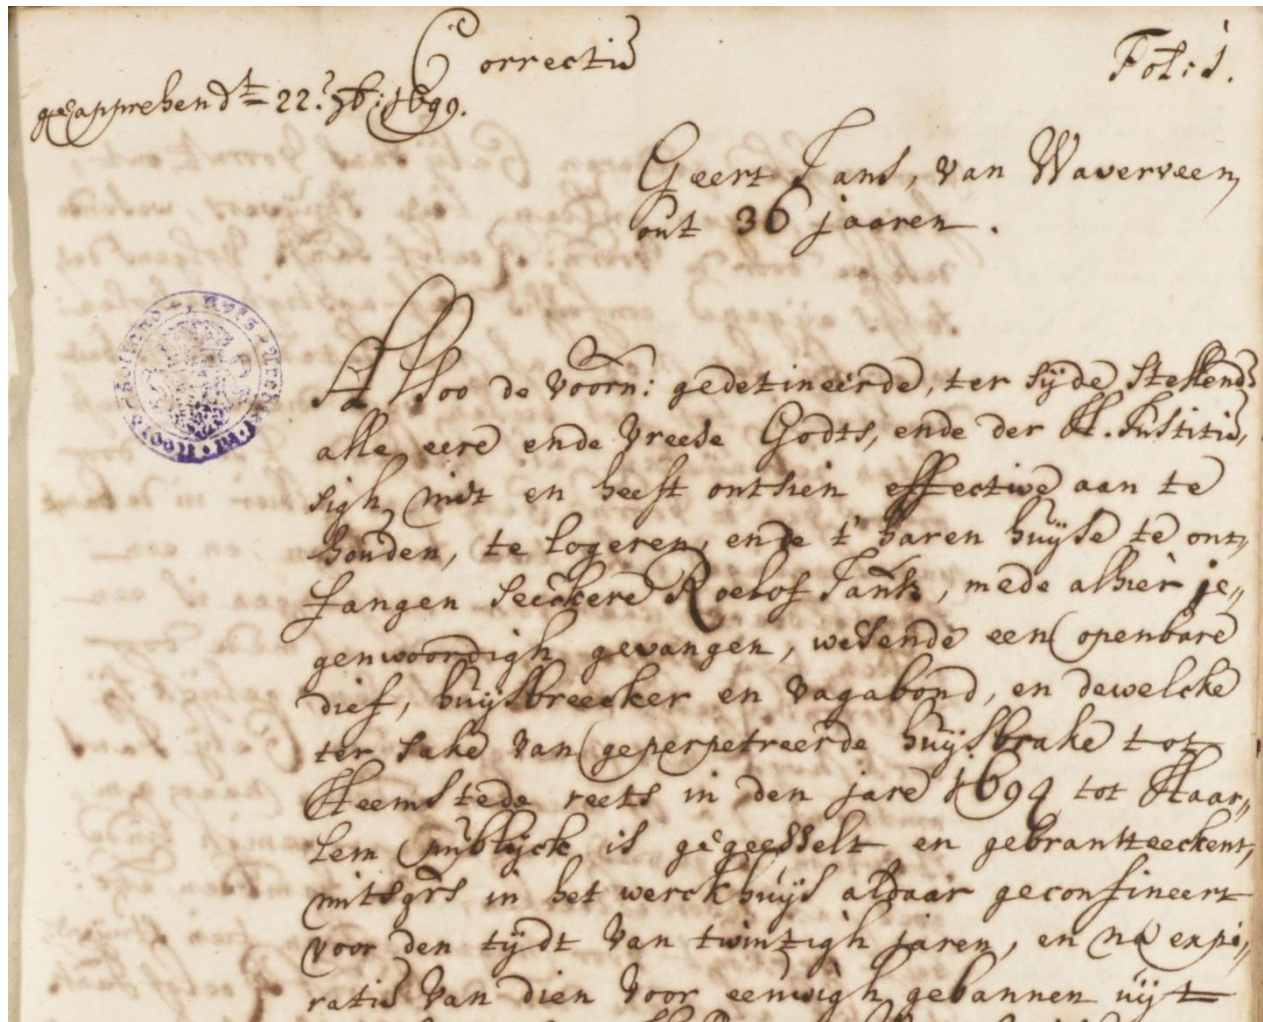 Correctie
Fol: 1.
geapprehendt 22: 7b: 1699.
Geert Jans, van Waverveen,
out 36 jaaren.
Alsoo de voorn: gedetineerde, ter sijde stellende
alle eere ende vreese Godts, ende der H. Justitie,
sigh niet en heeft ontsien effective aan te
houden, te logeren, ende t' haren huijse te ont„
fangen seeckere Roelof Jans, mede alhier je„
genwoordigh gevangen, wesende een openbare
dief, huijsbreecker en vagabond, en dewelcke
ter sake van geperpetreerde huijsbrake tot
Heemstede reets in den jare 1694 tot Haar„
lem publijck is gegeesselt en gebrantteeckent,
mitsgrs in het werckhuijs aldaar geconfineert
voor den tijdt van twintigh jaren, en na expi„
ratie van dien voor eeuwigh gebannen uijt